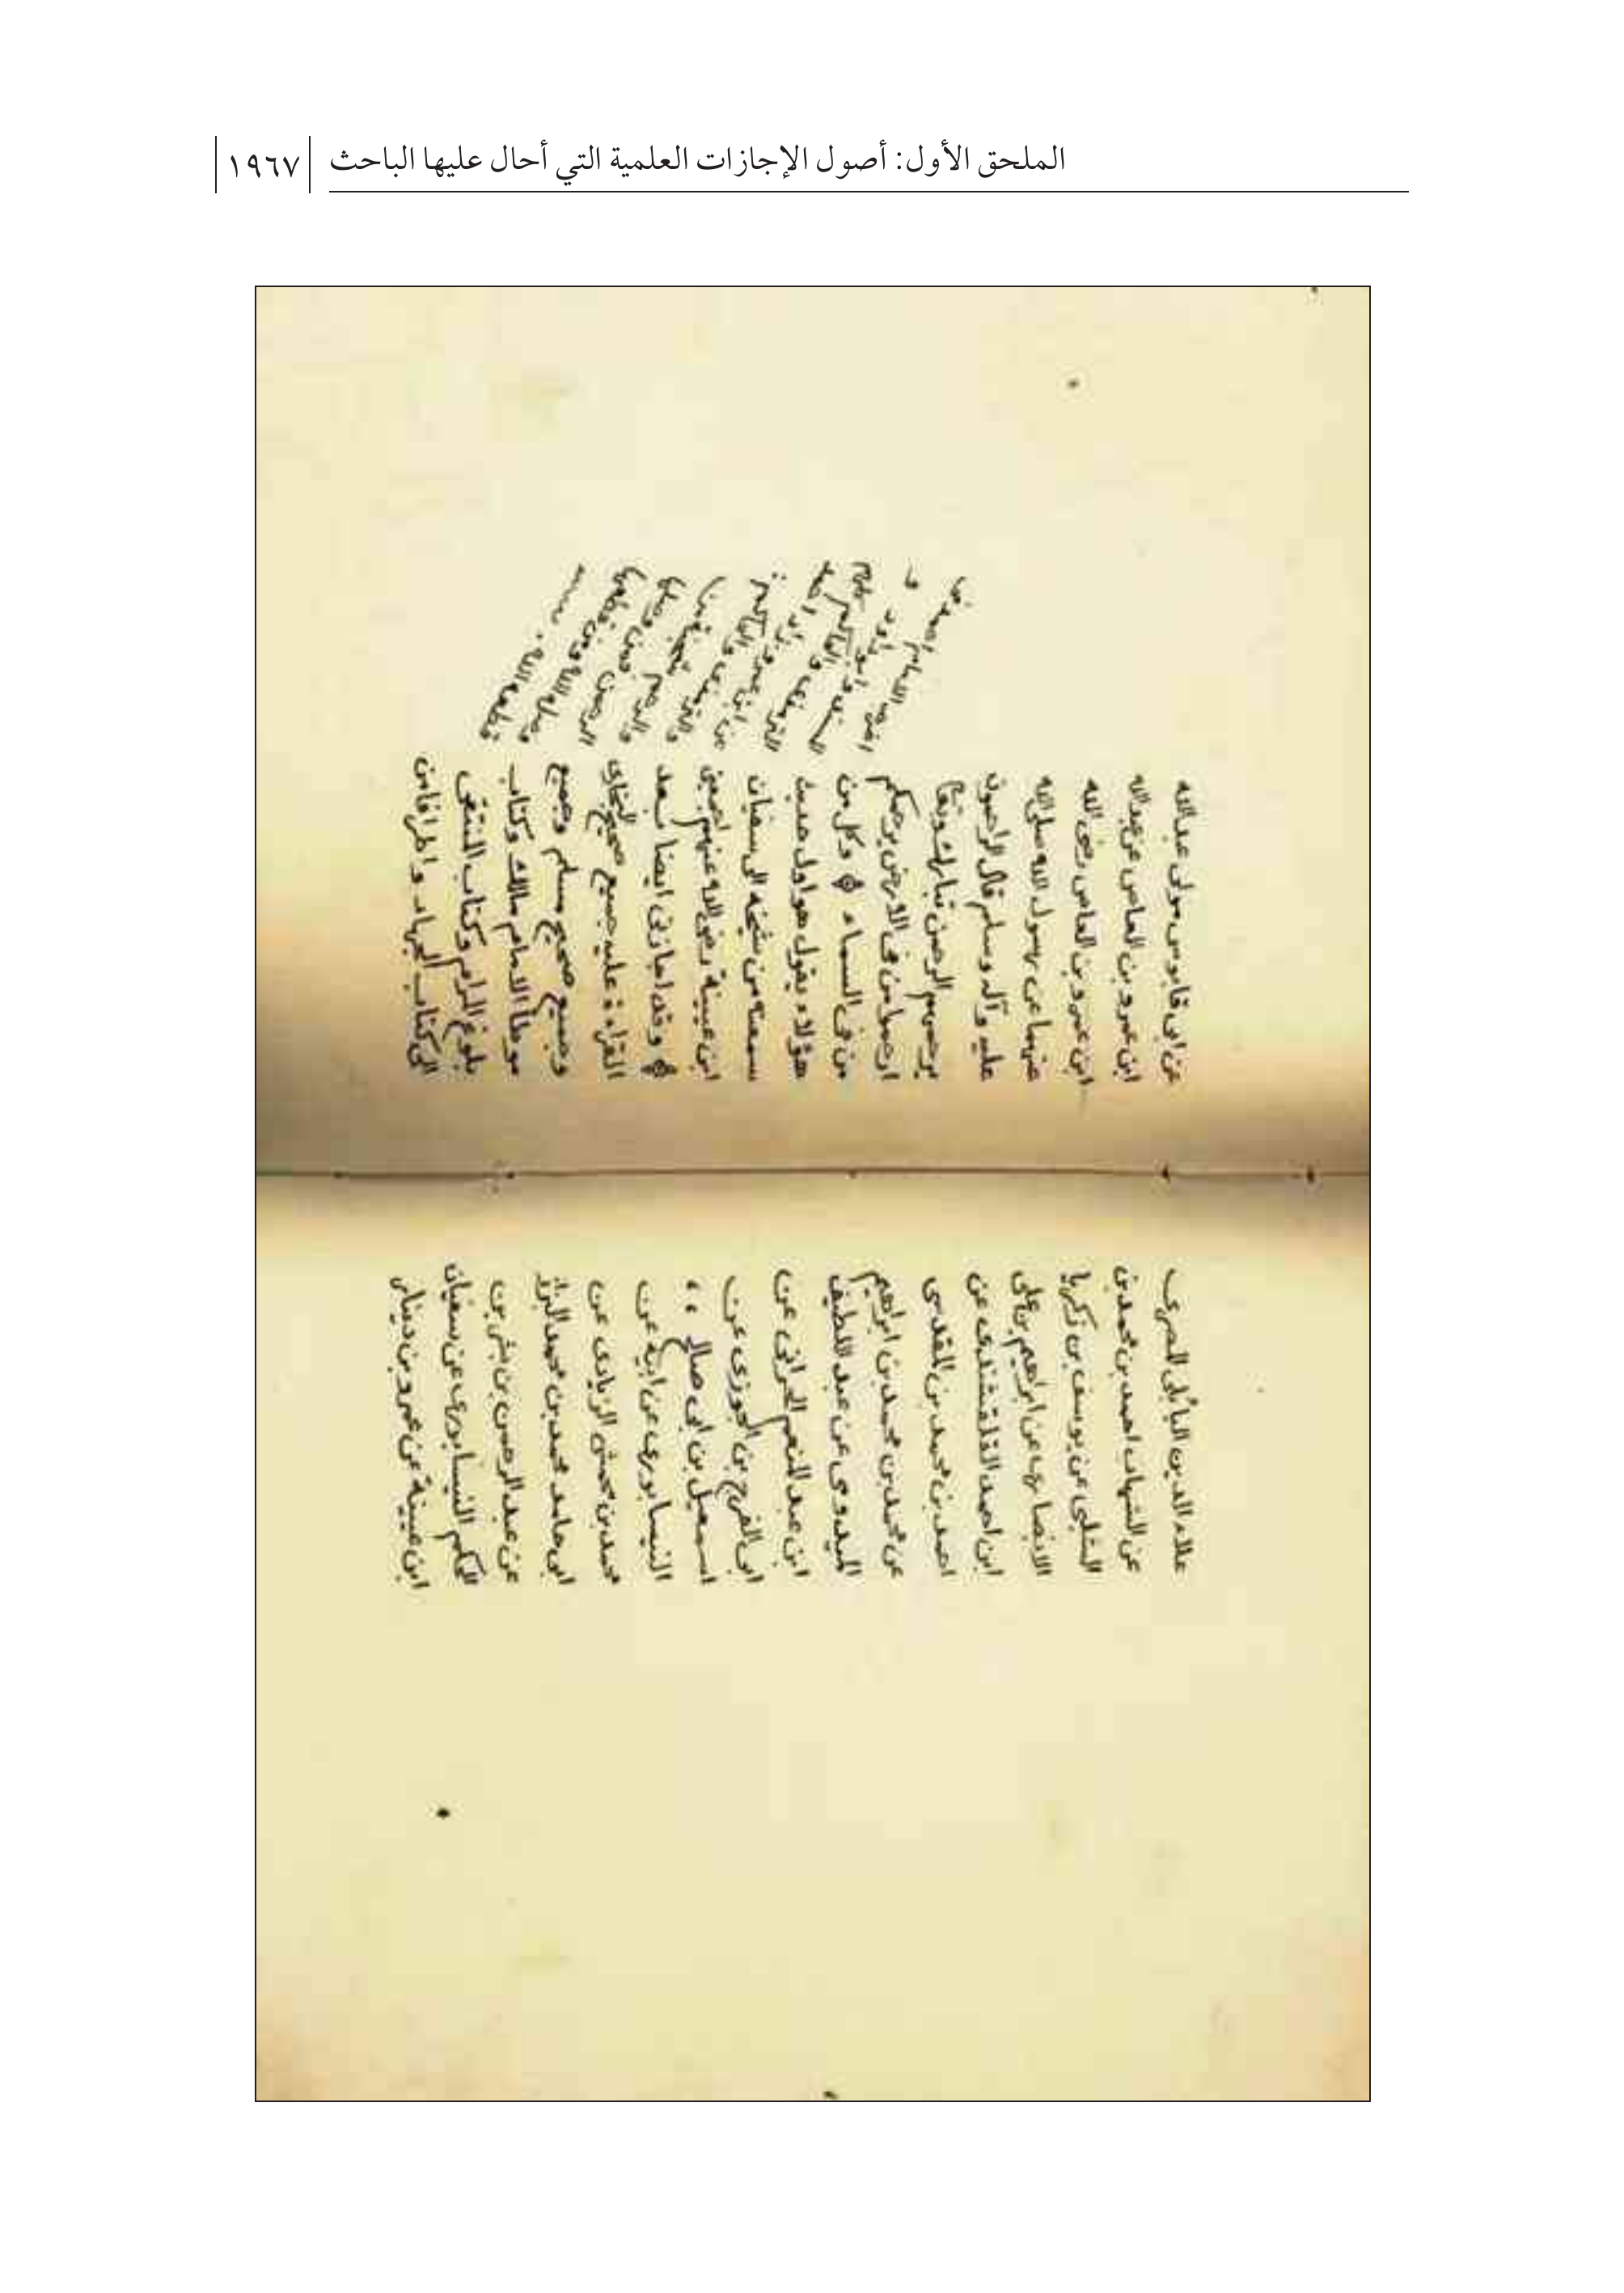 الملحق الأول: أصول الإجازات العلمية التي أحال عليها الباحث
١٩٦٧
علاء الدين البابلي المصري
عن الشهاب احمد بن محمد بن
الشلبي عن يوسف بن زكريا
الانصاري عن ابراهيم بن علي
ابن احمد القلقشندي عن
احمد بن محمد بن المقدسي
عن محمد بن محمد بن ابراهيم
الميدومي عن عبد اللطيف
ابن عبد المنعم الحراني عن
ابي الفرج بن الجوزي عن
اسمعيل بن ابي صالح
النيسابوري عن ابيه عن
محمد بن محمش الزيادي عن
ابي حامد محمد بن محمد البزاز
عن عبد الرحمن بن بشر بن
الحكم النيسابوري عن سفيان
ابن عيينة عن عمرو بن دينار
عن ابي قابوس مولى عبد الله
ابن عمرو بن العاص عن عبد الله
ابن عمرو بن العاص رضي الله
عنهما عن رسول الله صلى الله
عليه وآله وسلم قال الراحمون
يرحمهم الرحمن تبارك وتعالى
ارحموا من في الارض يرحمكم
من في السماء وكل من
هؤلاء يقول هو اول حديث
سمعته من شيخه الى سفيان
ابن عيينة رضي الله عنهم اجمعين
وقد اجازني ايضا بعد
القراءة عليه جميع صحيح البخاري
وجميع صحيح مسلم وجميع
موطأ الامام مالك وكتاب
بلوغ المرام وكتاب المنتقى
الى كتاب الجهاد واطرافا من
اخرجه الامام احمد في
وابو داود و
الترمذي والحاكم
عن ابن عمر وزاد احمد
والترمذي والحاكم
والرحم شجنة من
الرحمن فمن وصلها
وصله الله ومن قطعها
قطعه الله